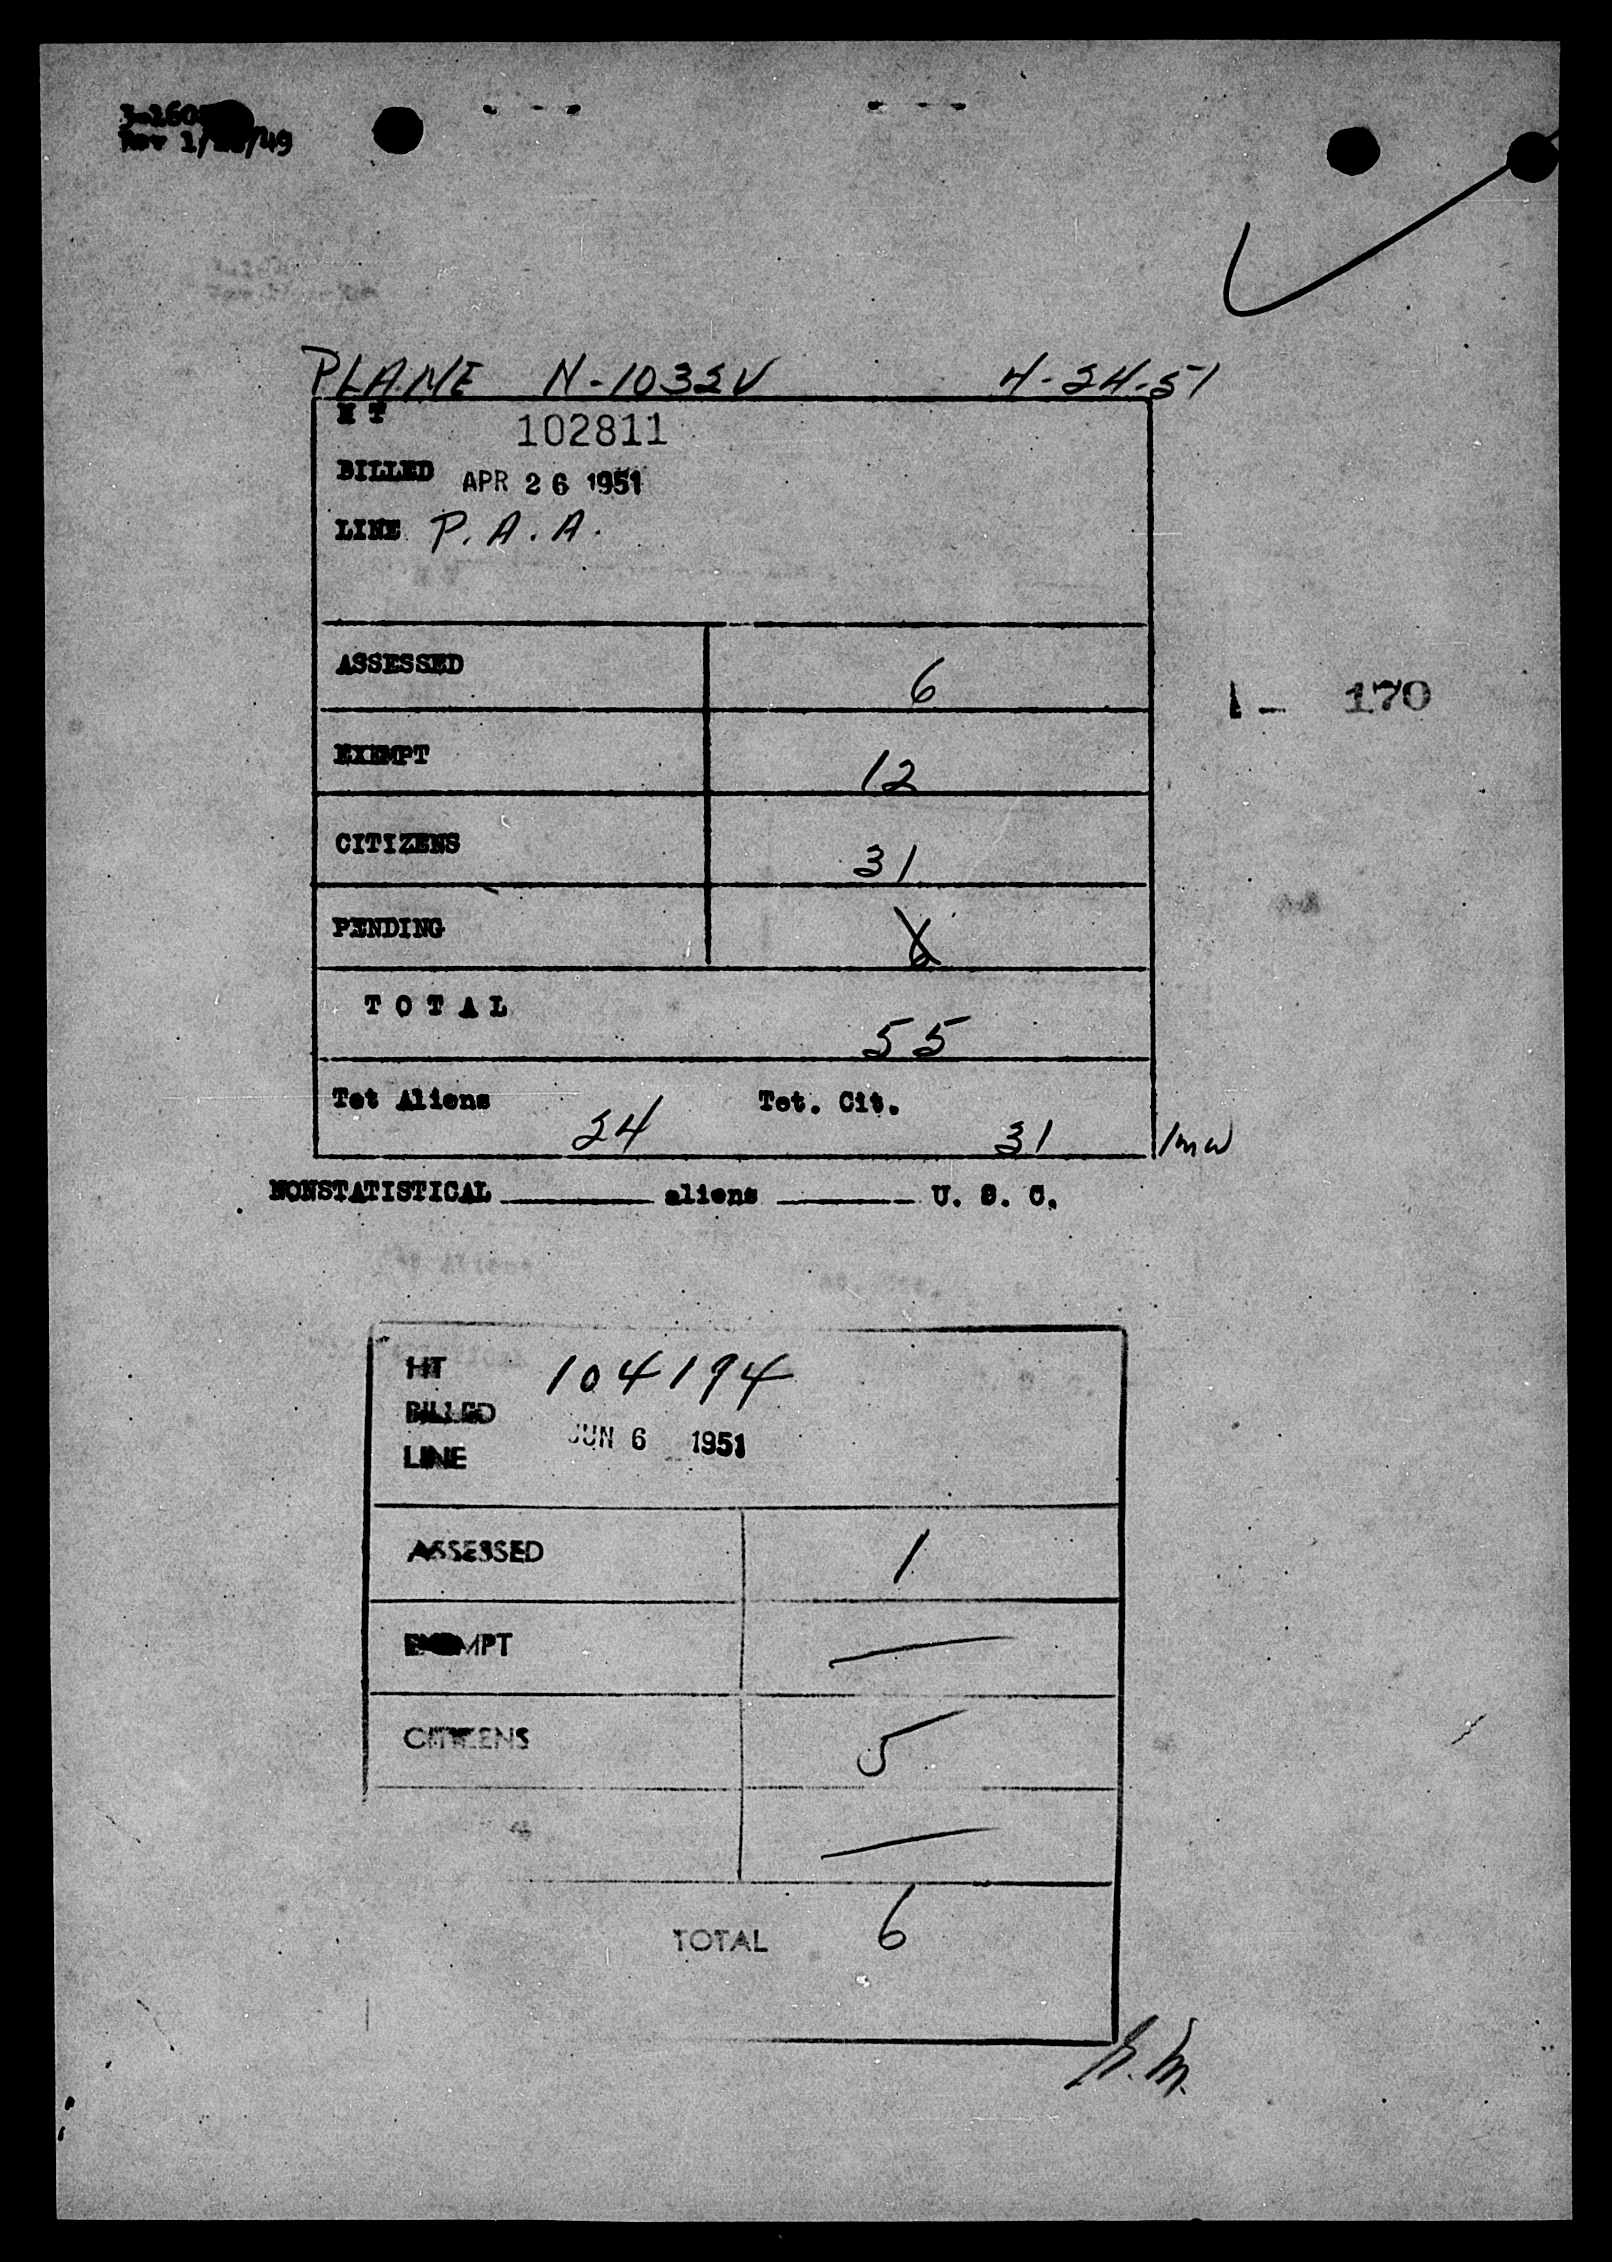 Rev 1/ /49
PLANE N-1032V 4-24-51
H T 102811
BILLED APR 26 1951
LINE P. A. A.
ASSESSED 6
1- 170
EXEMPT 12
CITIZENS 31
PENDING 6
T O T A L 55
Tot Aliens 24 Tot. Cit. 31 /mw
NONSTATISTICAL aliens U. S. C.
HT 104194
BILLED JUN 6 1951
LINE
ASSESSED 1
EXEMPT —
CITIZENS 5
—
TOTAL 6